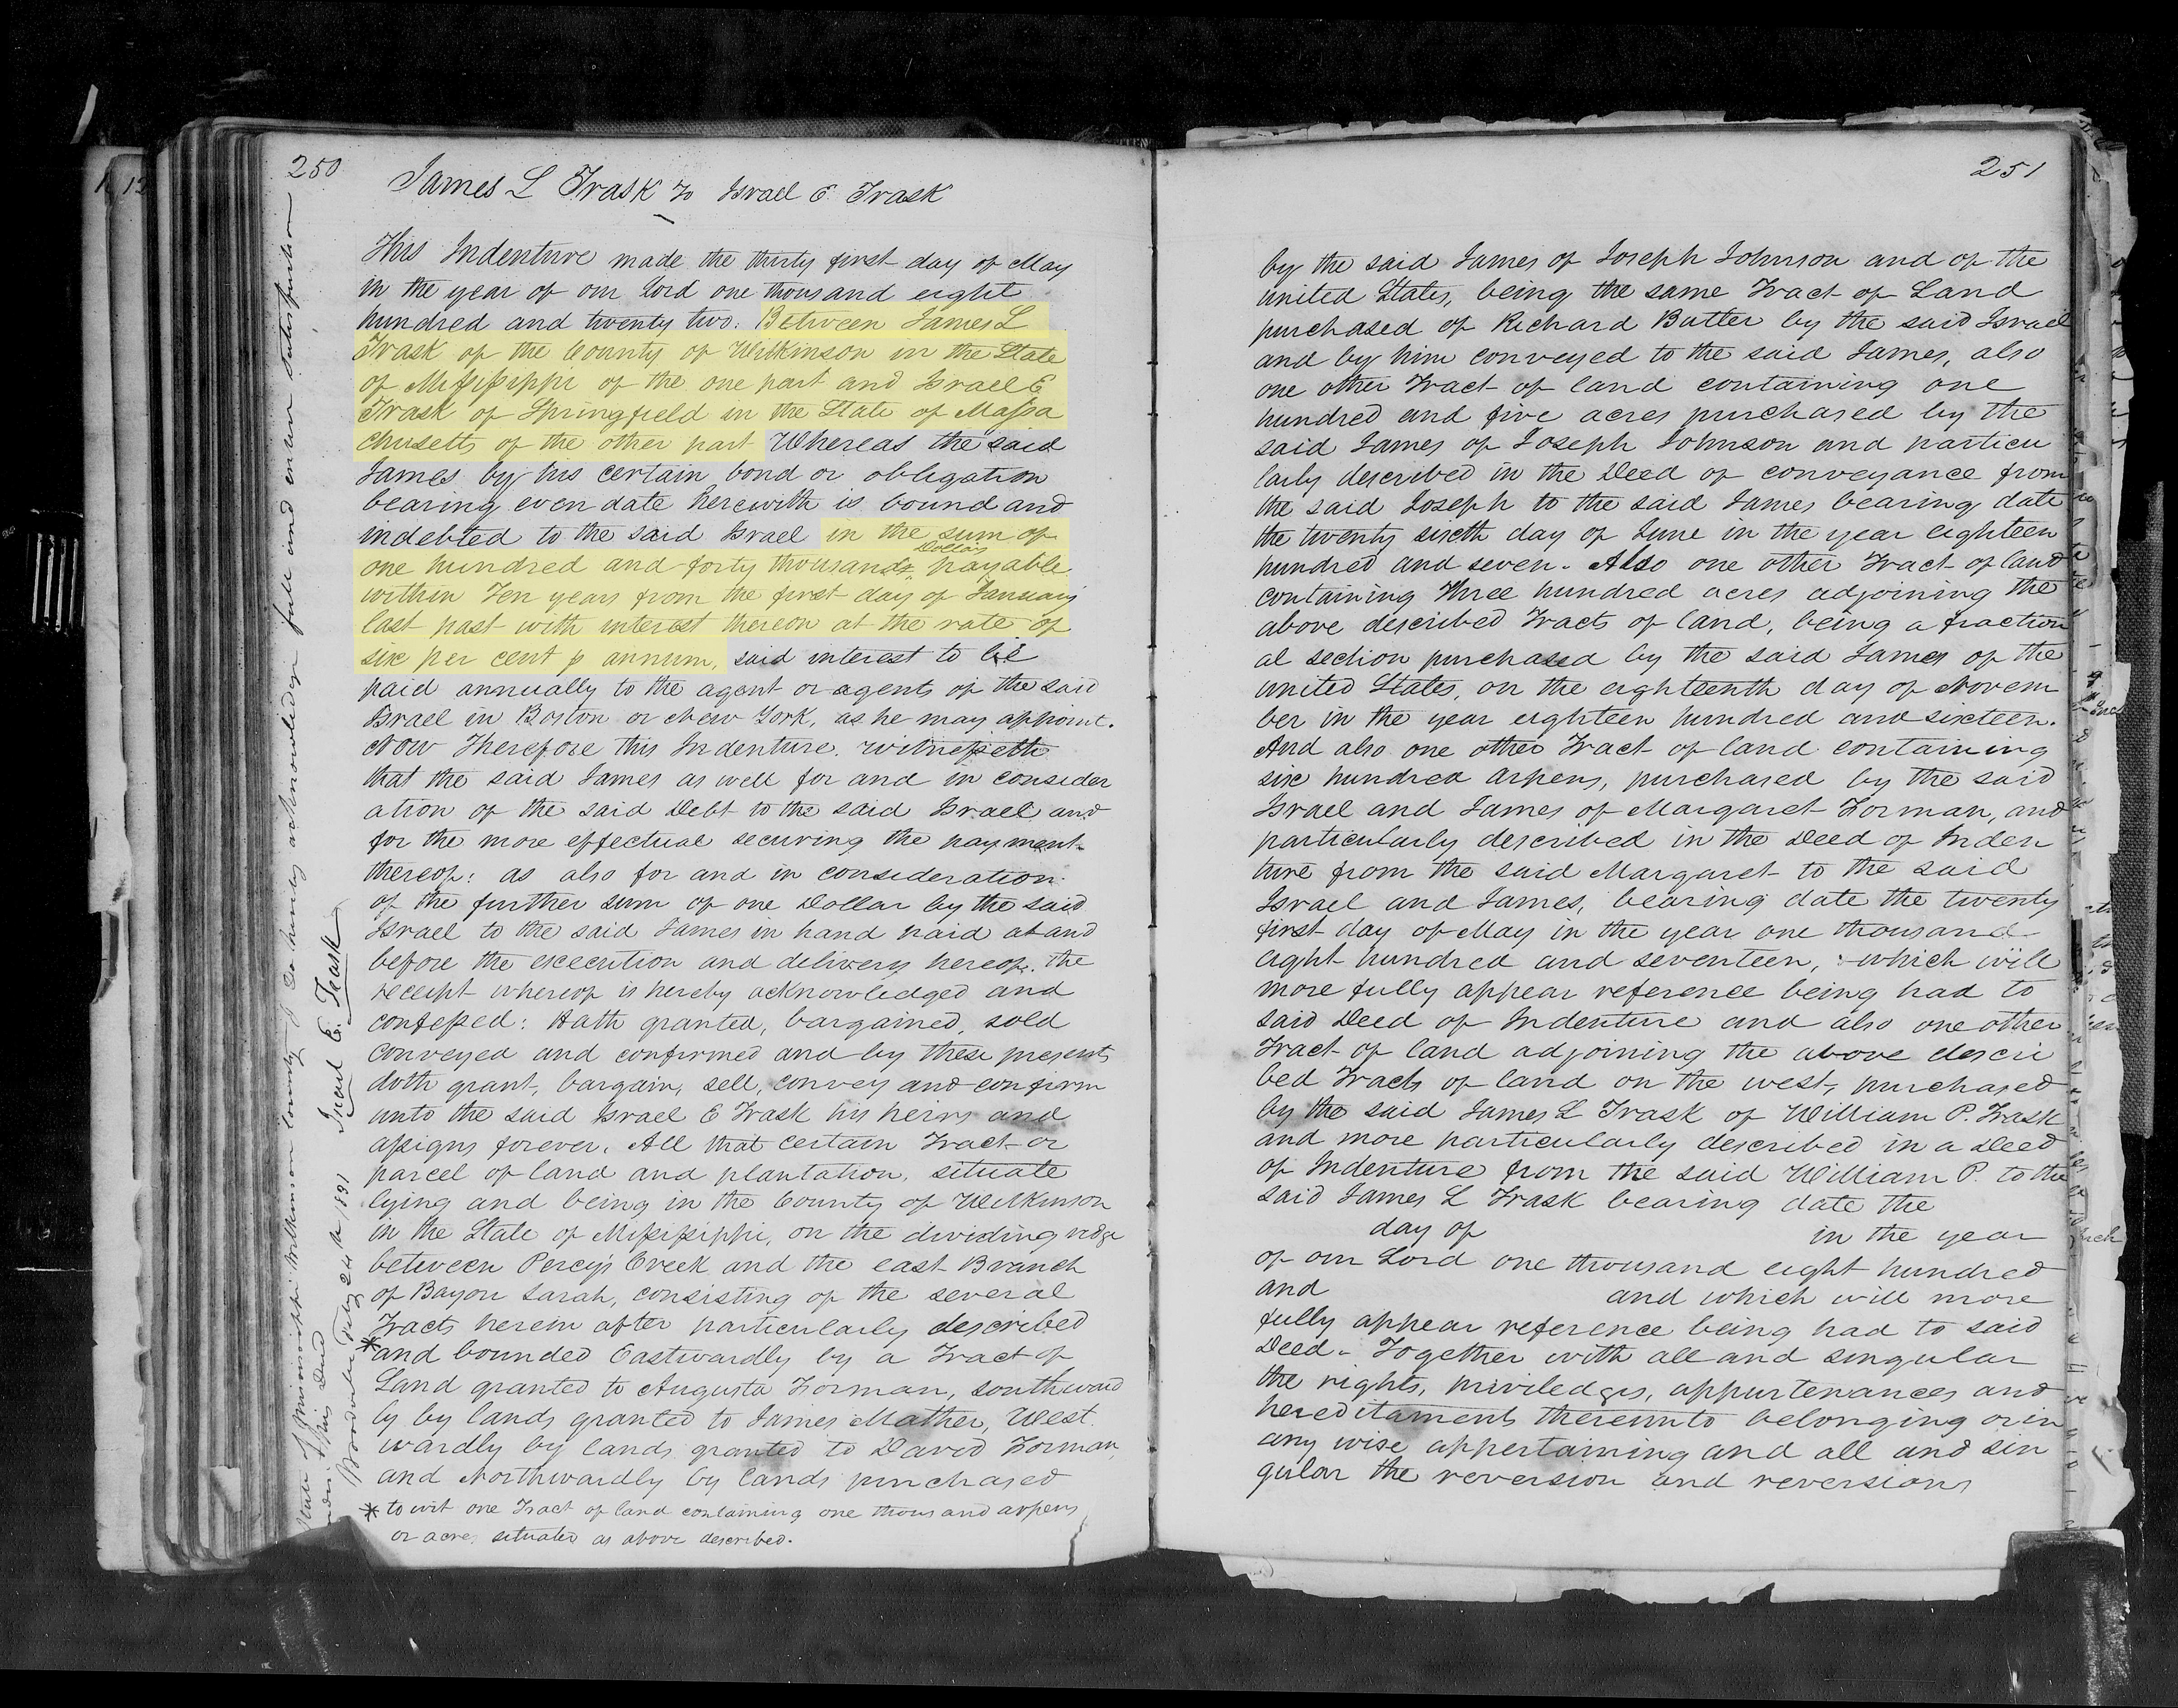 250
James L Trask to Israel E. Trask
This Indenture made the thirty first day of May
in the year of our Lord one thousand eight
hundred and twenty two. Between James L
Trask of the County of Wilkinson in the State
of Mississippi of the one part and Israel E
Trask of Springfield in the State of Massa
chusetts of the other part Whereas the said
James by his certain bond or obligation
bearing even date herewith is bound and
indebted to the said Israel in the sum of
one hundred and forty thousands Dollars payable
within Ten years from the first day of January
last past with interest thereon at the rate of
six per cent p annum, said interest to be
paid annually to the agent or agents of the said
Israel in Boston or New York, as he may appoint.
Now Therefore this Indenture witnesseth
that the said James as well for and in consider
ation of the said Debt to the said Israel and
for the more effectual securing the payment
thereof: as also for and in consideration
of the further sum of one Dollar by the said
Israel to the said James in hand paid at and
before the execution and delivery hereof. the
receipt whereof is hereby acknowledged and
confessed: Hath granted, bargained, sold
conveyed and confirmed and by these presents
doth grant, bargain, sell, convey and confirm
unto the said Israel E Trask his heirs and
assigns forever. All that certain Tract or
parcel of land and plantation, situate
lying and being in the County of Wilkinson
in the State of Mississippi, on the dividing ridge
between Percy's Creek and the east Branch
of Bayou Sarah, consisting of the several
Tracts herein after particularly described
* and bounded Eastwardly by a Tract of
Land granted to Augusta Forman, southward
ly by lands granted to James Mather, West
wardly by lands granted to David Forman,
and Northwardly by lands purchased
* to wit one Tract of land containing one thousand arpens
or acres situated as above described.
State of Mississippi Wilkinson County I do hereby acknowledge full and entire satisfaction
this Deed
Woodville May 24 1831 Israel E. Trask
251
by the said James of Joseph Johnson and of the
united States, being the same Tract of Land
purchased of Richard Butler by the said Israel
and by him conveyed to the said James, also
one other Tract of land containing one
hundred and five acres purchased by the
said James of Joseph Johnson and particu
larly described in the Deed of conveyance from
the said Joseph to the said James bearing date
the twenty sixth day of June in the year eighteen
hundred and seven. Also one other Tract of land
containing Three hundred acres adjoining the
above described Tracts of land, being a fraction
al section purchased by the said James of the
united States, on the eighteenth day of Novem
ber in the year eighteen hundred and sixteen.
And also one other Tract of land containing
six hundred Arpens, purchased by the said
Israel and James of Margaret Forman, and
particularly described in the Deed of Inden
ture from the said Margaret to the said
Israel and James, bearing date the twenty
first day of May in the year one thousand
eight hundred and seventeen, which will
more fully appear reference being had to
said Deed of Indenture and also one other
Tract of land adjoining the above descri
bed Tracts of land on the west, purchased
by the said James L Trask of William P. Trask
and more particularly described in a Deed
of Indenture from the said William P. to the
said James L Trask bearing date the
day of in the year
of our Lord one thousand eight hundred
and and which will more
fully appear reference being had to said
Deed. Together with all and singular
the rights, priviledges, appurtenances and
hereditaments thereunto belonging or in
any wise appertaining and all and sin
gular the reversion and reversions